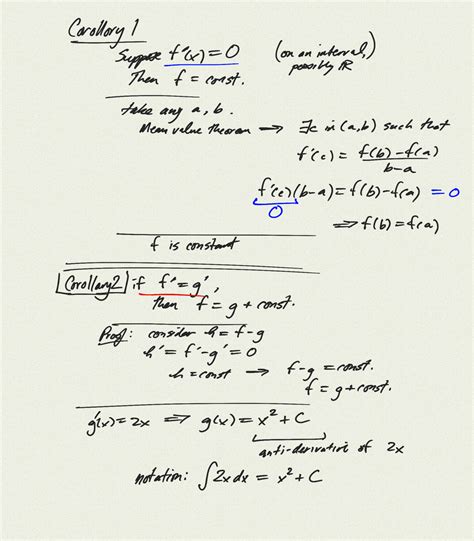 Corollary 1
Suppose f'(x) = 0 (on an interval, possibly ℝ)
Then f = const.
take any a, b.
Mean value theorem → ∃c in (a,b) such that
f'(c) = f(b)-f(a) / b-a
f'(c)(b-a) = f(b)-f(a) = 0
0
⇒ f(b) = f(a)
f is constant
Corollary 2 if f' = g',
then f = g + const.
Proof: consider h = f-g
h' = f'-g' = 0
h = const → f-g = const.
f = g + const.
g'(x) = 2x ⇒ g(x) = x² + C
anti-derivative of 2x
notation: ∫2x dx = x² + C